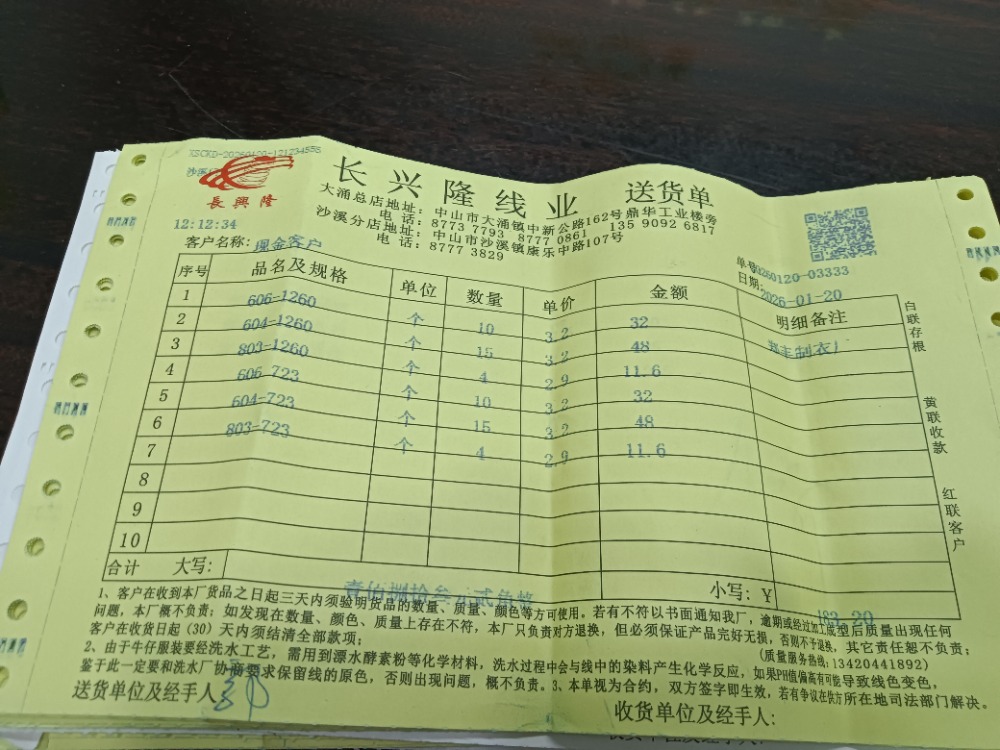 XSCKD-20260120-121234555
長興隆
长兴隆线业 送货单
大涌总店地址：中山市大涌镇中新公路162号鼎华工业楼旁
电 话：8773 7793 8777 0861 135 9092 6817
沙溪分店地址：中山市沙溪镇康乐中路107号
电 话：8777 3829
12:12:34
客户名称：现金客户
单号 0260120-03333
日期：2026-01-20
序号 品名及规格 单位 数量 单价 金额 明细备注
1 606-1260 个 10 3.2 32 制衣厂
2 604-1260 个 15 3.2 48
3 803-1260 个 4 2.9 11.6
4 606-723 个 10 3.2 32
5 604-723 个 15 3.2 48
6 803-723 个 4 2.9 11.6
7
8
9
10
合计 大写：壹佰捌拾叁元贰角整 小写：Y 183.20
白联存根
黄联收款
红联客户
1、客户在收到本厂货品之日起三天内须验明货品的数量、质量、颜色等方可使用。若有不符以书面通知我厂，逾期或经过加工成型后质量出现任何
问题，本厂概不负责；如发现在数量、颜色、质量上存在不符，本厂只负责对方退换，但必须保证产品完好无损，否则不予退换，其它责任恕不负责；
客户在收货日起（30）天内须结清全部款项；
(质量服务热线：13420441892)
2、由于牛仔服装要经洗水工艺，需用到漂水酵素粉等化学材料，洗水过程中会与线中的染料产生化学反应，如果PH值偏高有可能导致线色变色，
鉴于此一定要和洗水厂协商要求保留线的原色，否则出现问题，概不负责。3、本单视为合约，双方签字即生效，若有争议在供方所在地司法部门解决。
送货单位及经手人
收货单位及经手人：